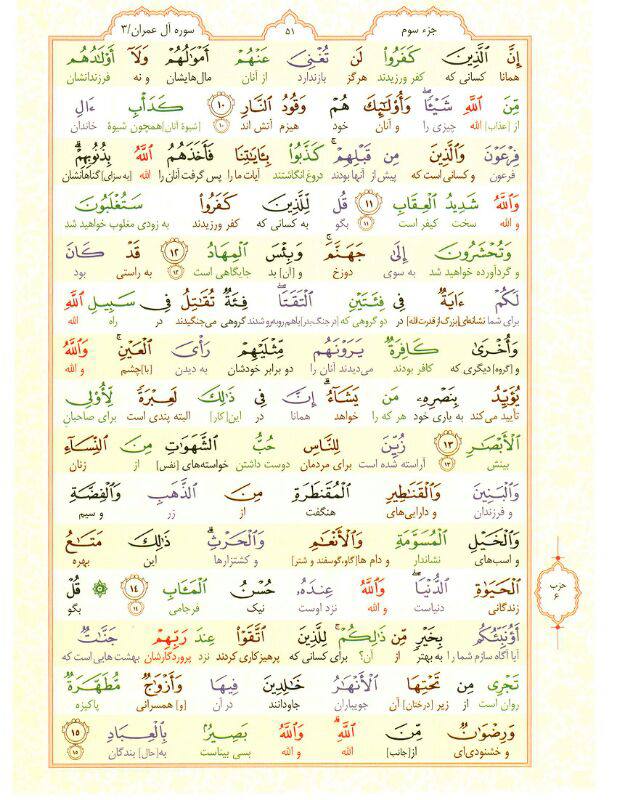 جزء سوم ٥١ سوره آل عمران/٣
إِنَّ ٱلَّذِينَ كَفَرُواْ لَن تُغْنِيَ عَنْهُمْ أَمْوَٰلُهُمْ وَلَآ أَوْلَٰدُهُم
همانا کسانی که کفر ورزیدند هرگز بازندارد از آنان مال‌هایشان و نه فرزندانشان
مِّنَ ٱللَّهِ شَيْـًٔا ۖ وَأُوْلَٰٓئِكَ هُمْ وَقُودُ ٱلنَّارِ ١٠ كَدَأْبِ ءَالِ
از [عذاب] الله چیزی را و آنان خود هیزم آتش اند ١٠ [شیوهٔ آنان] همچون شیوهٔ خاندان
فِرْعَوْنَ وَٱلَّذِينَ مِن قَبْلِهِمْ ۚ كَذَّبُواْ بِـَٔايَٰتِنَا فَأَخَذَهُمُ ٱللَّهُ بِذُنُوبِهِمْ ۗ
فرعون و کسانی است که پیش از آنها بودند دروغ انگاشتند آیات ما را پس گرفت آنان را الله [به سزای] گناهانشان
وَٱللَّهُ شَدِيدُ ٱلْعِقَابِ ١١ قُل لِّلَّذِينَ كَفَرُواْ سَتُغْلَبُونَ
و الله سخت کیفر است ١١ بگو به کسانی که کفر ورزیدند به زودی مغلوب خواهید شد
وَتُحْشَرُونَ إِلَىٰ جَهَنَّمَ ۚ وَبِئْسَ ٱلْمِهَادُ ١٢ قَدْ كَانَ
و گردآورده خواهید شد به سوی دوزخ و [آن] بد جایگاهی است ١٢ به راستی بود
لَكُمْ ءَايَةٌ فِي فِئَتَيْنِ ٱلْتَقَتَا ۖ فِئَةٌ تُقَٰتِلُ فِي سَبِيلِ ٱللَّهِ
برای شما نشانه‌ای [بزرگ از قدرت الله] در دو گروهی که [در جنگ بدر] باهم روبه‌رو شدند گروهی می‌جنگیدند در راه الله
وَأُخْرَىٰ كَافِرَةٌ يَرَوْنَهُم مِّثْلَيْهِمْ رَأْيَ ٱلْعَيْنِ ۚ وَٱللَّهُ
و [گروه] دیگری که کافر بودند می‌دیدند آنان را دو برابر خودشان به دیدن [با] چشم و الله
يُؤَيِّدُ بِنَصْرِهِۦ مَن يَشَآءُ ۗ إِنَّ فِي ذَٰلِكَ لَعِبْرَةً لِّأُوْلِي
تأیید می‌کند به یاری خود هر که را خواهد همانا در این [کار] البته پندی است برای صاحبان
ٱلْأَبْصَٰرِ ١٣ زُيِّنَ لِلنَّاسِ حُبُّ ٱلشَّهَوَٰتِ مِنَ ٱلنِّسَآءِ
بینش ١٣ آراسته شده است برای مردمان دوست داشتن خواسته‌های [نفس] از زنان
وَٱلْبَنِينَ وَٱلْقَنَٰطِيرِ ٱلْمُقَنطَرَةِ مِنَ ٱلذَّهَبِ وَٱلْفِضَّةِ
و فرزندان و دارایی‌های هنگفت از زر و سیم
وَٱلْخَيْلِ ٱلْمُسَوَّمَةِ وَٱلْأَنْعَٰمِ وَٱلْحَرْثِ ۗ ذَٰلِكَ مَتَٰعُ
و اسب‌های نشاندار و دام ها [گاو، گوسفند و شتر] و کشتزارها این بهره
ٱلْحَيَوٰةِ ٱلدُّنْيَا ۖ وَٱللَّهُ عِندَهُۥ حُسْنُ ٱلْمَـَٔابِ ١٤ ۞ قُلْ
زندگانی دنیاست و الله نزد اوست نیک فرجامی ١٤ بگو
حزب ۶
أَؤُنَبِّئُكُم بِخَيْرٍ مِّن ذَٰلِكُمْ ۚ لِلَّذِينَ ٱتَّقَوْاْ عِندَ رَبِّهِمْ جَنَّٰتٌ
آیا آگاه سازم شما را به بهتر از آن؟ برای کسانی که پرهیزکاری کردند نزد پروردگارشان بهشت هایی است که
تَجْرِي مِن تَحْتِهَا ٱلْأَنْهَٰرُ خَٰلِدِينَ فِيهَا وَأَزْوَٰجٌ مُّطَهَّرَةٌ
روان است از زیر [درختان] آن جویباران جاودانند در آن [و] همسرانی پاکیزه
وَرِضْوَٰنٌ مِّنَ ٱللَّهِ ۗ وَٱللَّهُ بَصِيرٌۢ بِٱلْعِبَادِ ١٥
و خشنودی‌ای از [جانب] الله و الله بسی بیناست به [حال] بندگان ١٥